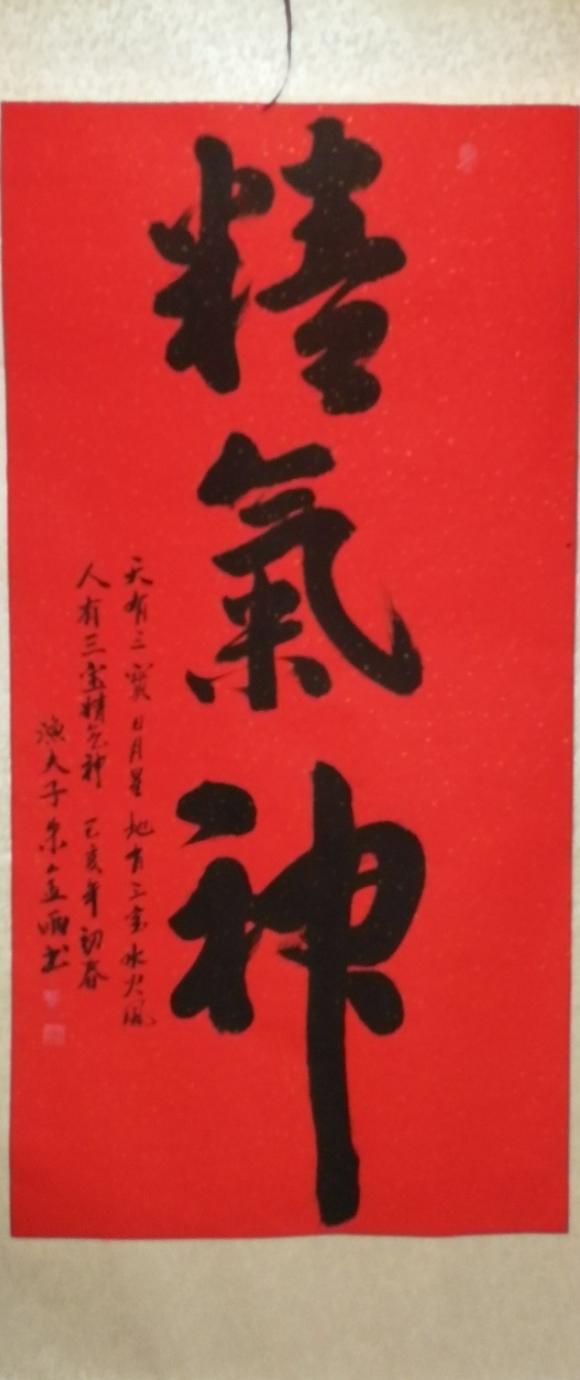 精氣神
天有三寳日月星地有三宝水火风
人有三宝精气神 己亥年初春
渔夫子 书